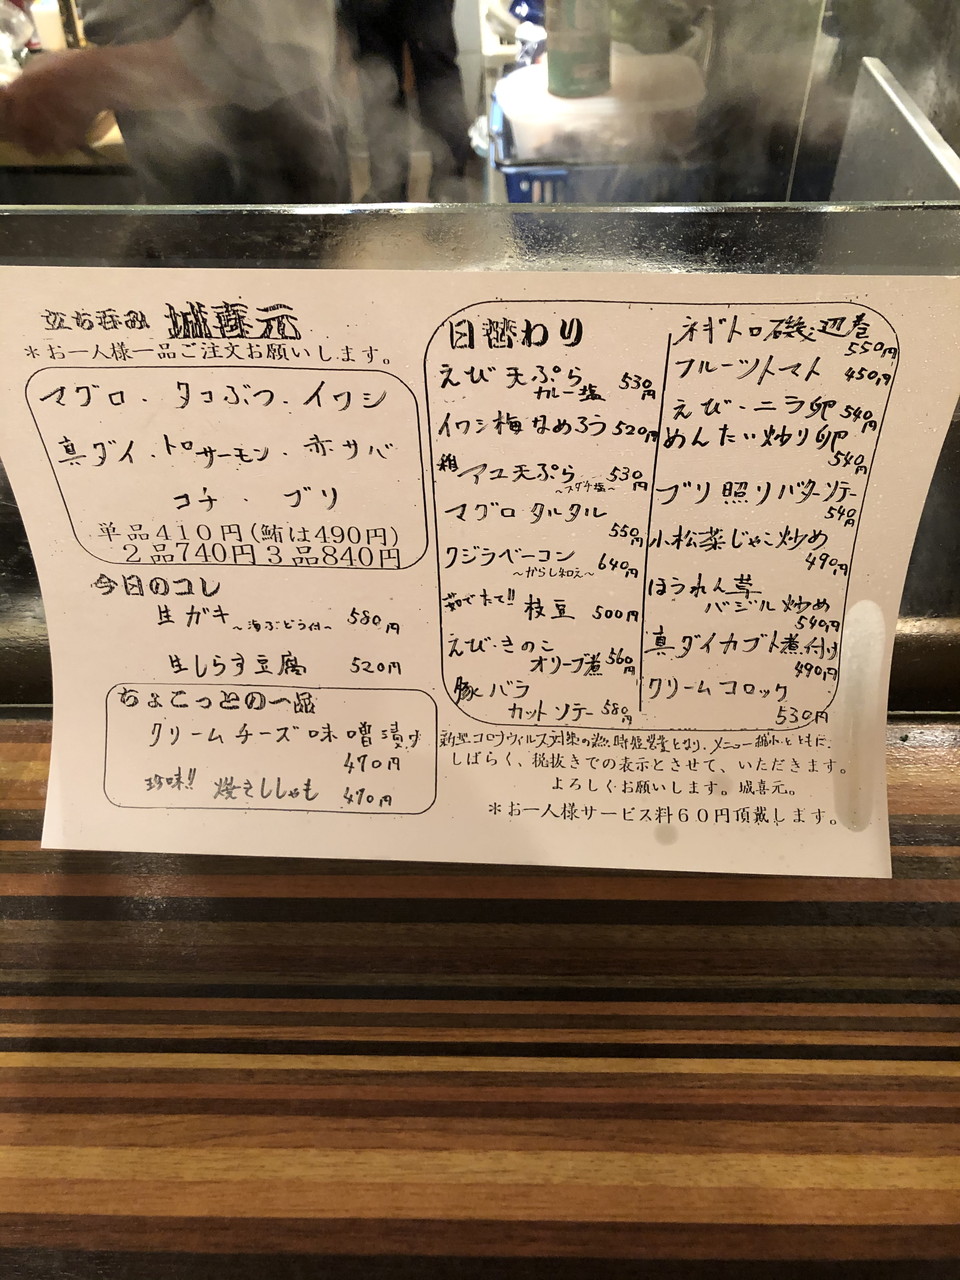 立ち呑み 城喜元
＊お一人様一品ご注文お願いします。
マグロ・タコぶつ・イワシ
真ダイ・トロサーモン・赤サバ
コチ・ブリ
単品410円(鮪は490円)
2品740円3品840円
今日のコレ
生ガキ ～海ぶどう付～ 580円
生しらす豆腐 520円
ちょこっとの一品
クリームチーズ味噌漬け
470円
珍味!! 焼きししゃも 470円
日替わり
えび天ぷら
カレー塩 530円
イワシ梅なめろう 520円
稚アユ天ぷら 530円
～スダチ塩～
マグロタルタル
550円
クジラベーコン 640円
～からし和え～
茹でたて!! 枝豆 500円
えび・きのこ
オリーブ煮 560円
豚バラ
カットソテー 580円
ネギトロ磯辺巻
550円
フルーツトマト 450円
えび・ニラ卵 540円
めんたい炒り卵
540円
ブリ照りバターソテー
540円
小松菜じゃこ炒め
490円
ほうれん草
バジル炒め
540円
真ダイカブト煮付け
490円
クリームコロッケ
530円
新型コロナウィルス対策の為、時短営業となり、メニュー縮小とともに、
しばらく、税抜きでの表示とさせて、いただきます。
よろしくお願いします。城喜元。
＊お一人様サービス料60円頂戴します。